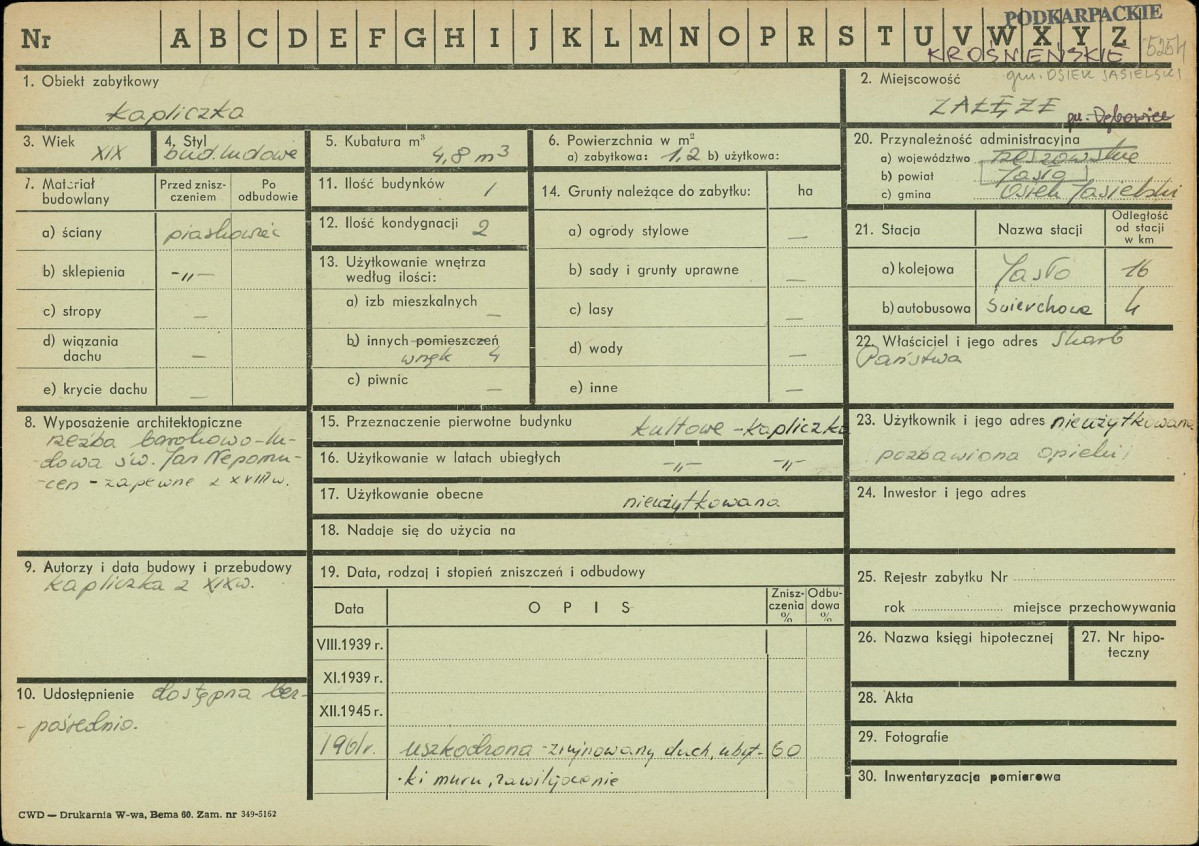 PODKARPACKIE
Nr A B C D E F G H I J K L M N O P R S T U V W X Y Z
KROŚNIEŃSKIE 5254
gm. OSIEK JASIELSKI
1. Obiekt zabytkowy
kapliczka
2. Miejscowość
ZAŁĘŻE gm. Dębowiec
3. Wiek
XIX
4. Styl
bud. ludowe
5. Kubatura m³
4,8 m³
6. Powierzchnia w m²
a) zabytkowa: 1,2 b) użytkowa:
20. Przynależność administracyjna
a) województwo rzeszowskie
b) powiat Jasło
c) gmina Osiek Jasielski
7. Materiał budowlany
Przed zniszczeniem
Po odbudowie
a) ściany piaskowiec
b) sklepienia -„-
c) stropy —
d) wiązania dachu —
e) krycie dachu —
11. Ilość budynków 1
12. Ilość kondygnacji 2
13. Użytkowanie wnętrza
według ilości:
a) izb mieszkalnych —
b) innych pomieszczeń
wnęk 4
c) piwnic —
14. Grunty należące do zabytku: ha
a) ogrody stylowe —
b) sady i grunty uprawne —
c) lasy —
d) wody —
e) inne —
21. Stacja
Nazwa stacji
Odległość
od stacji
w km
a) kolejowa Jasło 16
b) autobusowa Świerchowa 4
22. Właściciel i jego adres Skarb
Państwa
8. Wyposażenie architektoniczne
rzeźba barokowo-lu-
-dowa św. Jan Nepomu-
-cen - zapewne z XVIII w.
15. Przeznaczenie pierwotne budynku kultowe - kapliczka
16. Użytkowanie w latach ubiegłych -„- -„-
17. Użytkowanie obecne nieużytkowana
18. Nadaje się do użycia na
23. Użytkownik i jego adres nieużytkowana
pozbawiona opieki
24. Inwestor i jego adres
9. Autorzy i data budowy i przebudowy
kapliczka z XIX w.
10. Udostępnienie dostępna bez-
- pośrednio.
19. Data, rodzaj i stopień zniszczeń i odbudowy
Data
OPIS
Znisz-
czenia
%
Odbu-
dowa
%
VIII.1939 r.
XI.1939 r.
XII.1945 r.
1961 r. uszkodzona - zrujnowany dach, ubyt- 60
-ki muru, zawilgocenie
25. Rejestr zabytku Nr
rok miejsce przechowywania
26. Nazwa księgi hipotecznej
27. Nr hipo-
teczny
28. Akta
29. Fotografie
30. Inwentaryzacja pomiarowa
CWD — Drukarnia W-wa, Bema 60. Zam. nr 349-5162